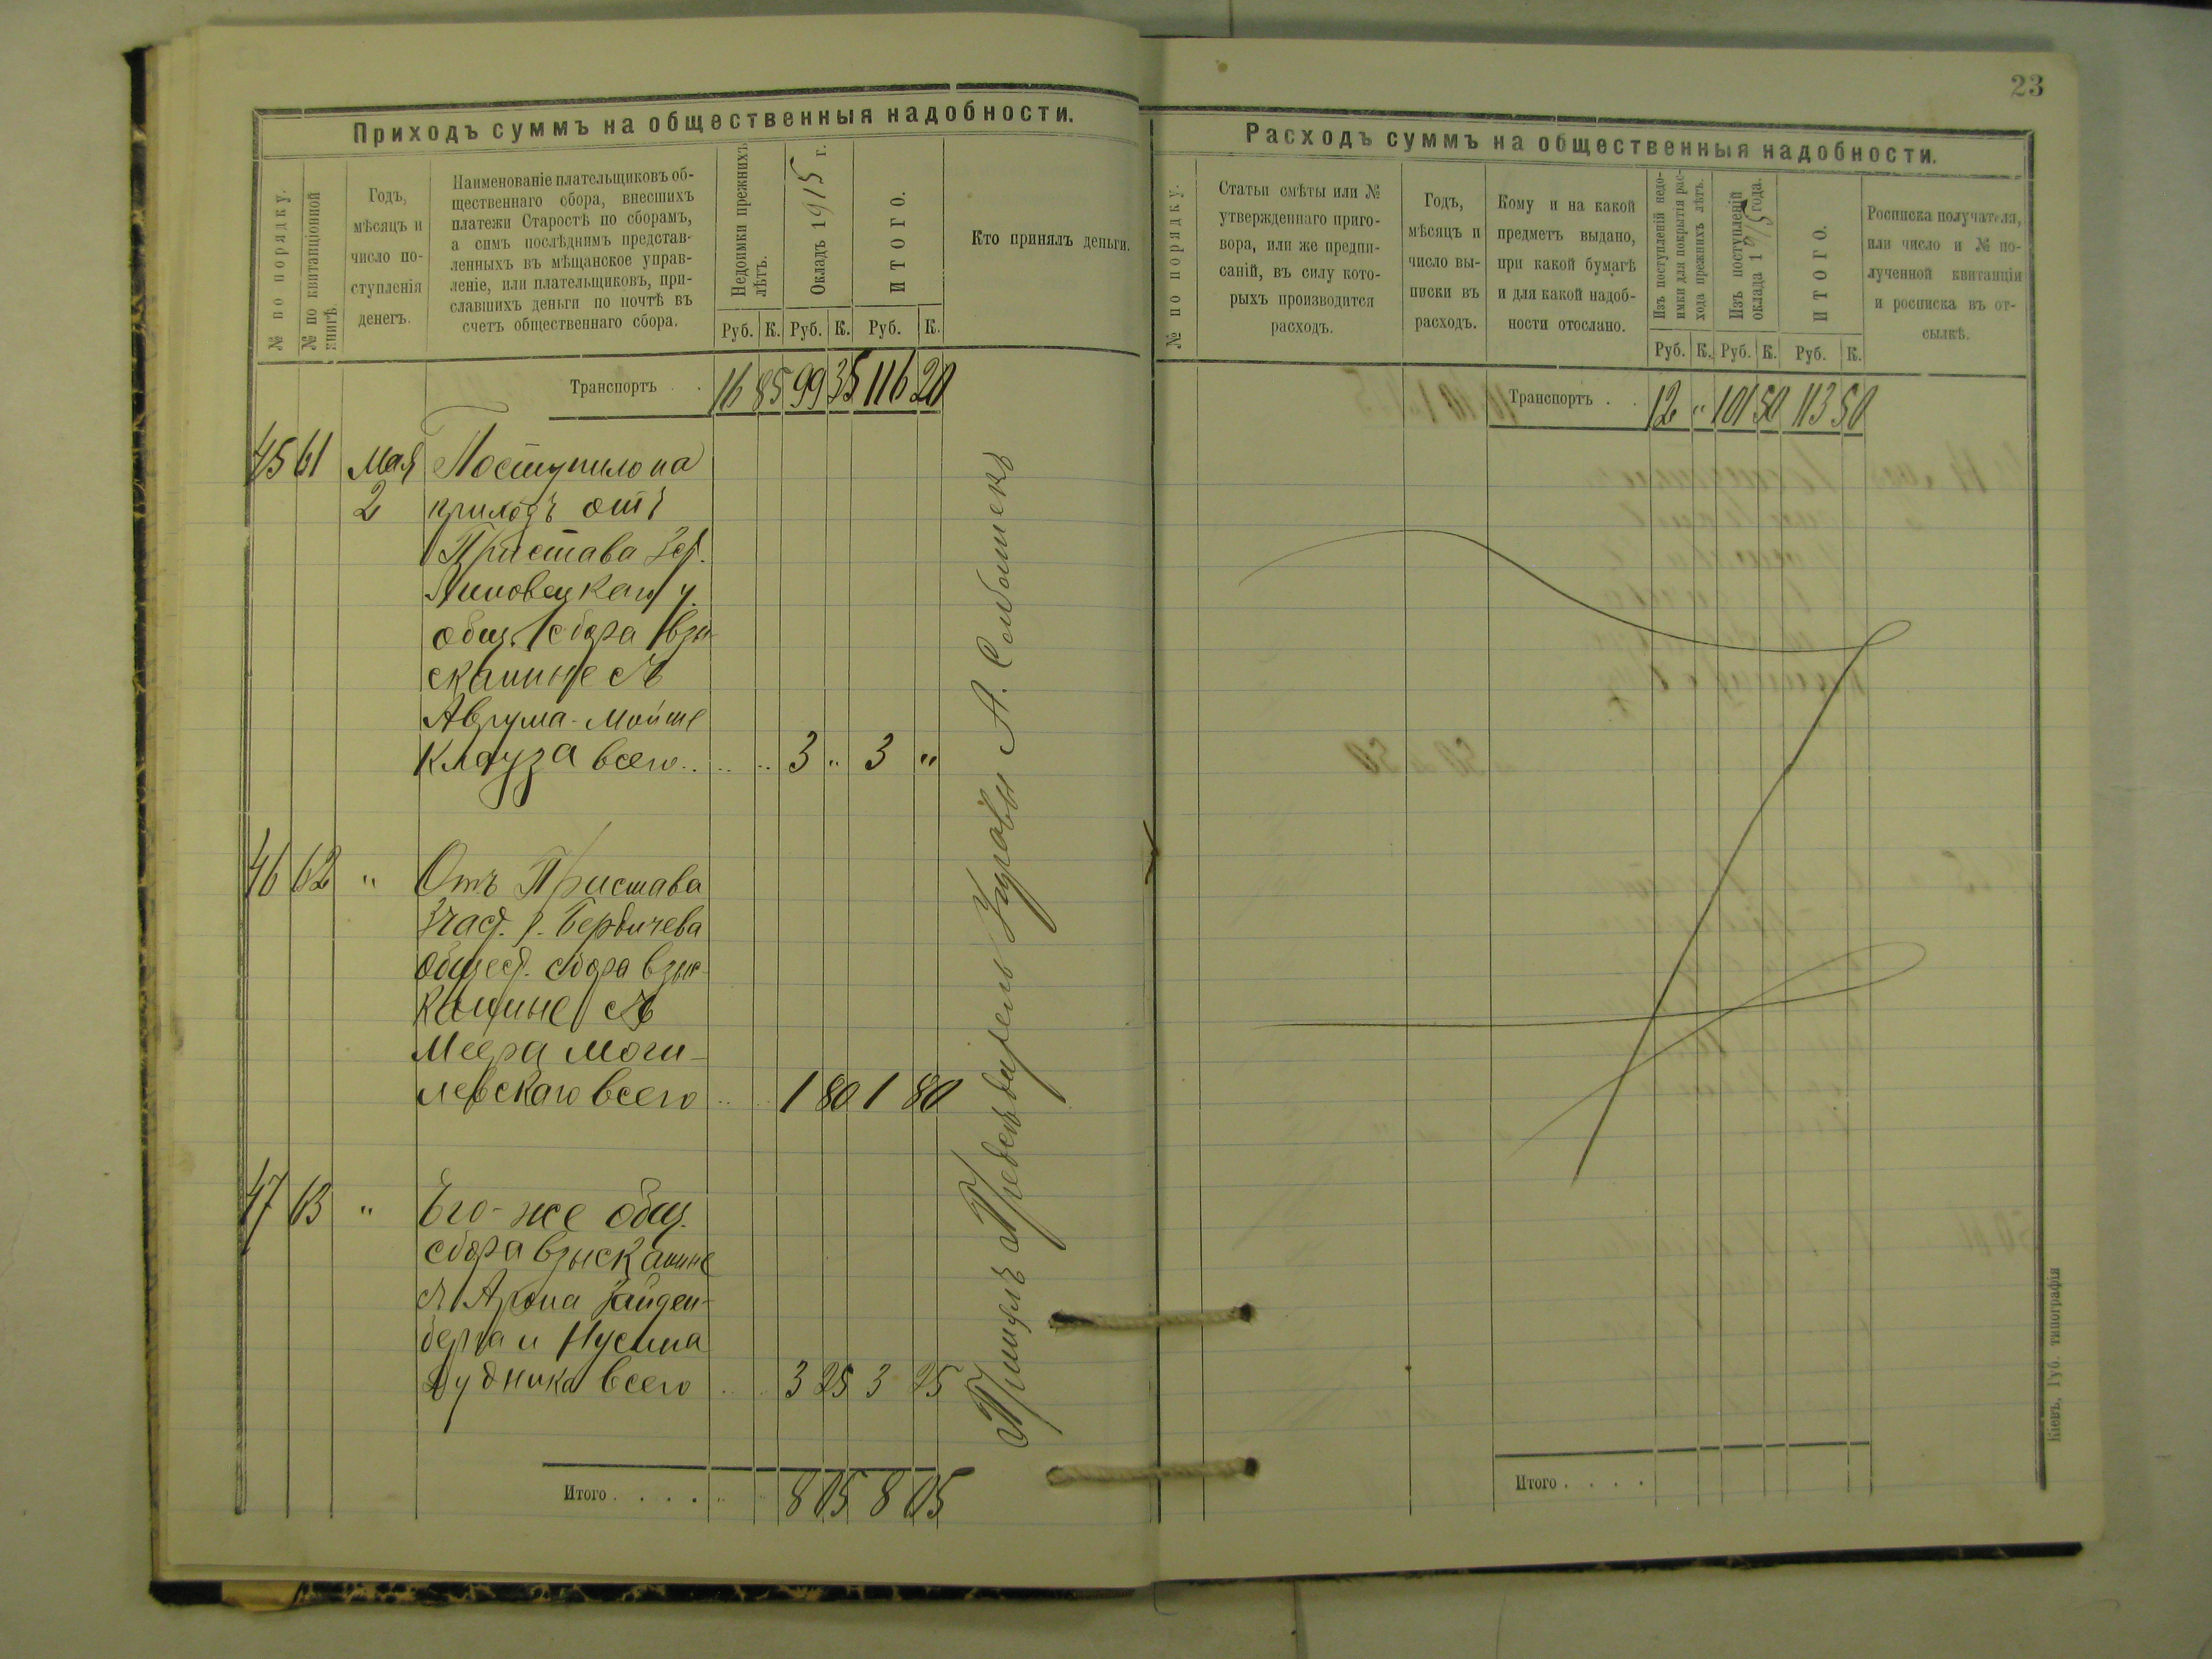 23
Приходъ суммъ на общественныя надобности.
№ по порядку.
№ по квитанціонной книгѣ.
Годъ,
мѣсяцъ и
число по-
ступленія
денегъ.
Наименованіе плательщиковъ об-
щественнаго сбора, внесшихъ
платежи Старостѣ по сборамъ,
а симъ послѣднимъ представ-
ленныхъ въ мѣщанское управ-
леніе, или плательщиковъ, при-
славшихъ деньги по почтѣ въ
счетъ общественнаго сбора.
Недоимки прежнихъ лѣтъ.
Окладъ 1915 г.
ИТОГО.
Кто принялъ деньги.
Руб. К. Руб. К. Руб. К.
Транспортъ . . 16 85 99 35 116 20
45 61 Мая Поступило на
2 приходъ отъ
Пристава
Липовецкаго у.
общ. сбора взы-
сканные съ
Аврума-Мойше
Клауза всего.. 3 „ 3 „
46 62 „ Отъ Пристава
3 част. г. Бердичева
Общест. сбора взыс-
канные съ
Меера Моги-
левскаго всего 1 80 1 80
47 63 „ Его-же общ.
сбора взысканные
съ Арона Зайден-
берга и Нусина
Дудника всего 3 25 3 25
Итого . . . . 8 05 8 05
Расходъ суммъ на общественныя надобности.
№ по порядку.
Статьи смѣты или №
утвержденнаго приго-
вора, или же предпи-
саній, въ силу кото-
рыхъ производится
расходъ.
Годъ,
мѣсяцъ и
число вы-
писки въ
расходъ.
Кому и на какой
предметъ выдано,
при какой бумагѣ
и для какой надоб-
ности отослано.
Изъ поступленій недо-
имки для покрытія рас-
хода прежнихъ лѣтъ.
Изъ поступленій
оклада 1915 года.
ИТОГО.
Росписка получателя,
или число и № по-
лученной квитанціи
и росписка въ от-
сылкѣ.
Руб. К. Руб. К. Руб. К.
Транспортъ . . 12 „ 101 50 113 50
Итого . . . .
Кіевъ, Губ. типографія